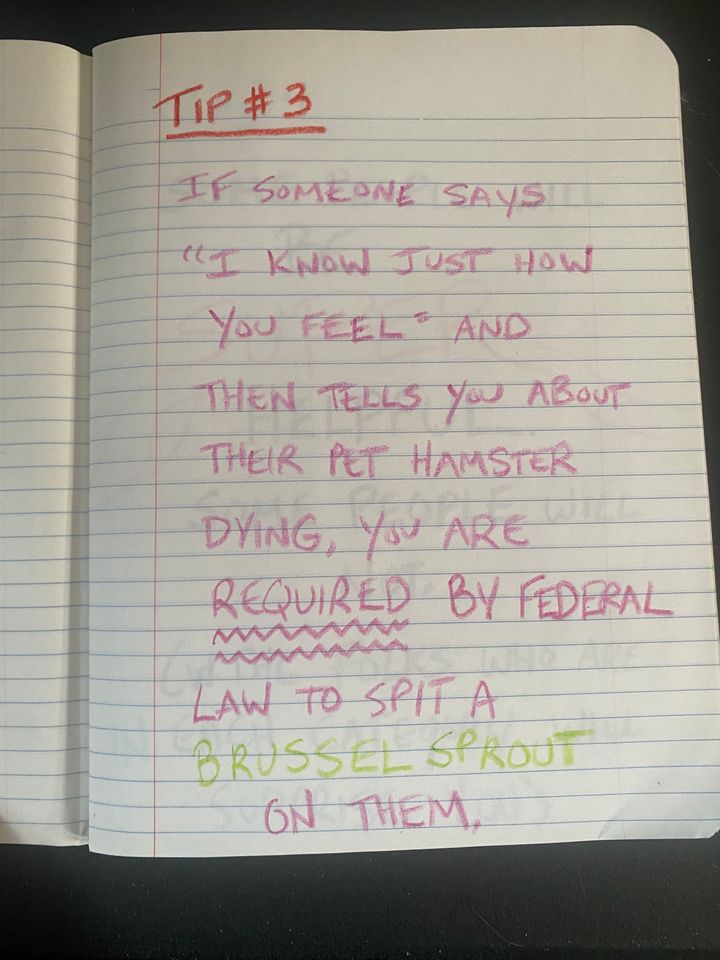 TIP #3
IF SOMEONE SAYS
"I KNOW JUST HOW
YOU FEEL" AND
THEN TELLS YOU ABOUT
THEIR PET HAMSTER
DYING, YOU ARE
REQUIRED BY FEDERAL
LAW TO SPIT A
BRUSSEL SPROUT
ON THEM.